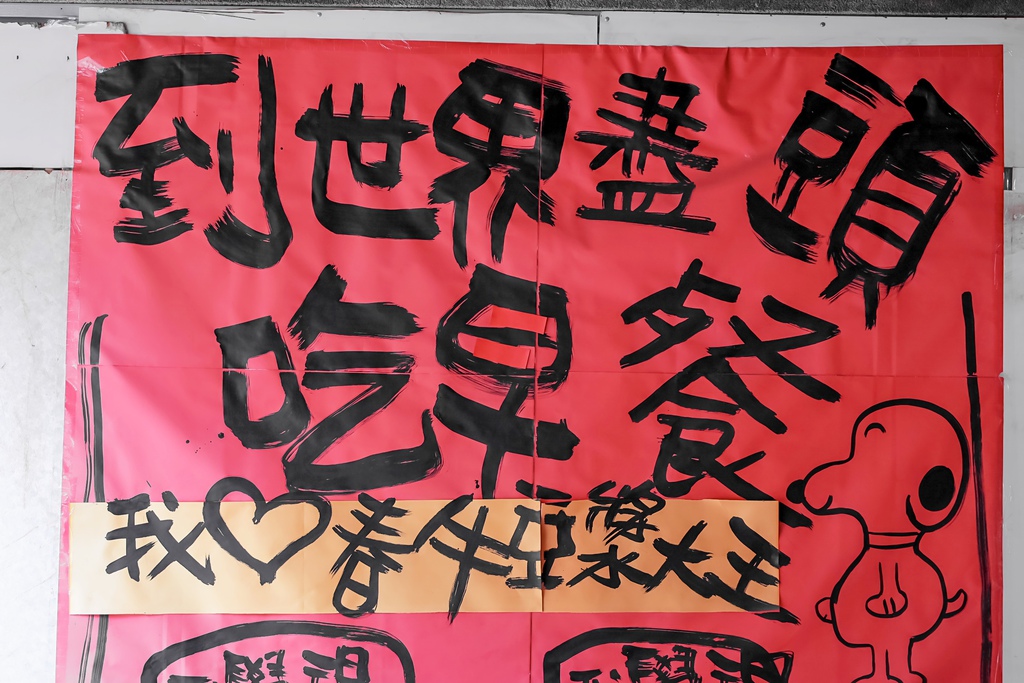 到世界盡頭
吃早餐
我♡春牛豆漿大王